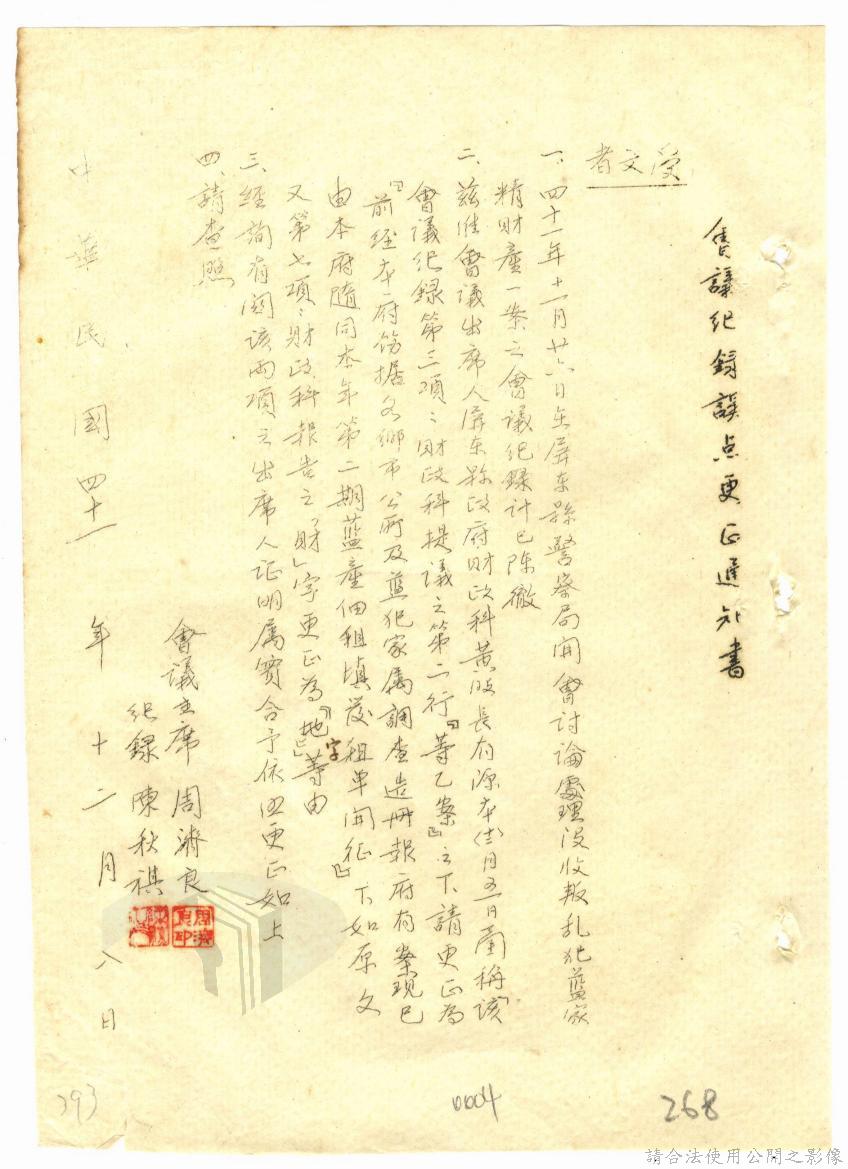 會議紀錄誤点更正通知書
受文者
一、四十一年十一月廿六日在屏東縣警察局開會討論處理沒收叛乱犯藍家
精財產一案之會議紀錄計已陳徹
二、茲准會議出席人屏東縣政府財政科黃股長有源本(十二)月五日面稱「該
會議紀錄第三項：財政科提議之第二行『等乙案』之下請更正為
『前經本府飭據各鄉市公所及藍犯家屬調查造冊報府有案現已
由本府隨同本年第二期藍產佃租填發租單開征』下如原文
又第七項：財政科報告之「財」字更正為「地」字等由
三、經詢有関該兩項之出席人证明属實合予依照更正如上
四、請查照
會議主席 周濟良
紀錄 陳秋祺
中華民國四十一年十二月八日
393
0004
268
請合法使用公開之影像